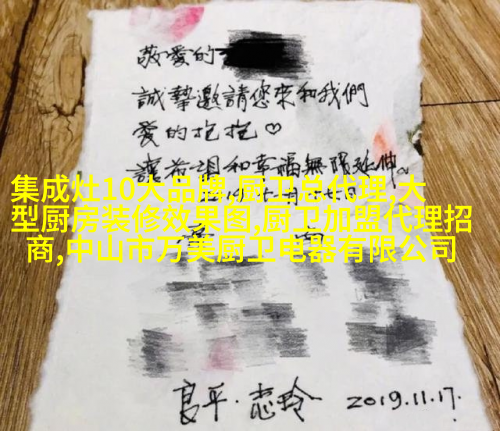 敬愛的
誠摯邀請您來和我們
愛的抱抱♡
讓希望和幸福無限延伸~
集成灶10大品牌,厨卫总代理,大
型厨房装修效果图,厨卫加盟代理招
商,中山市万美厨卫电器有限公司
良平.志玲 2019.11.17.